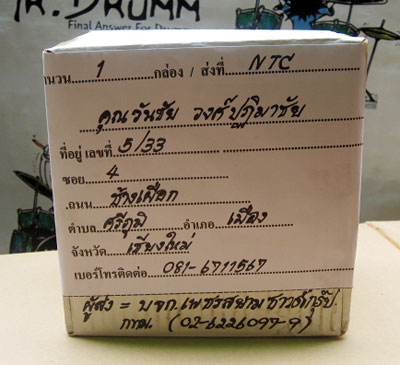 R. DRUMM
Final Answer For Drumm
านวน 1 กล่อง / ส่งที่ NTC
คุณวันชัย วงศ์ปฏิมาชัย
ที่อยู่ เลขที่ 5/33
ซอย 4
ถนน ช้างเผือก
ตำบล ศรีภูมิ อำเภอ เมือง
จังหวัด เชียงใหม่
เบอร์โทรติดต่อ 081-6711567
ผู้ส่ง = บจก. เพชรสยาม ซาวด์กรุ๊ป.
กทม. (02-6226097-9)